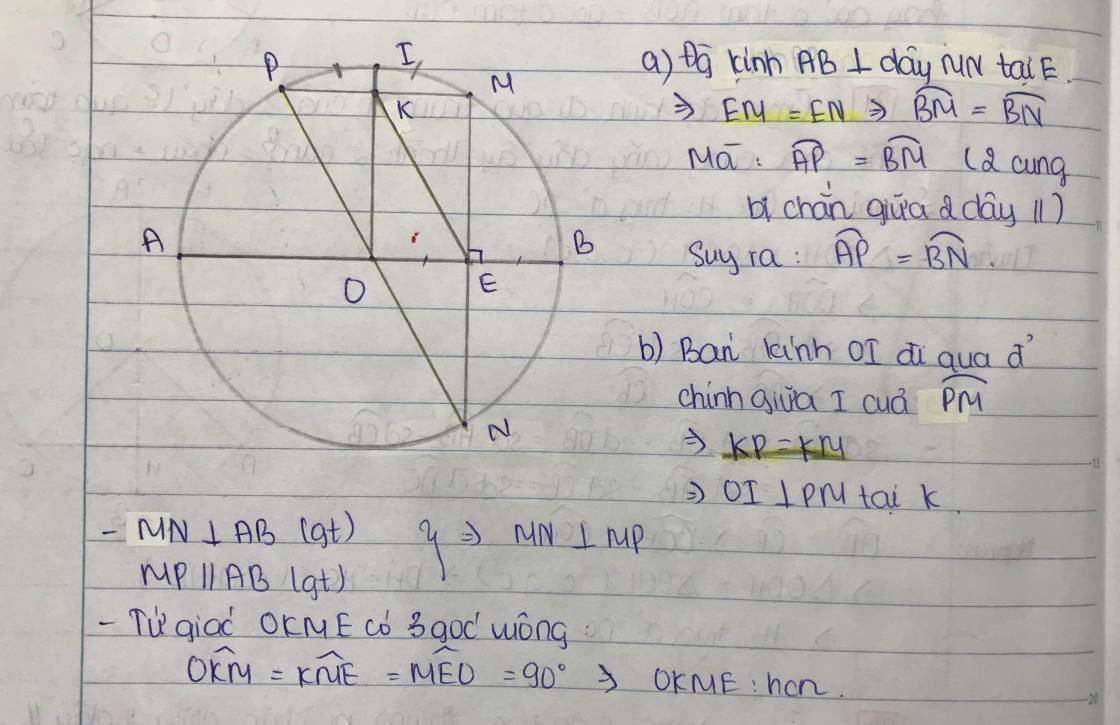 P
I
M
K
A
B
O
E
N
a) Đg kính AB ⊥ dây MN tại E.
⇒ EM = EN ⇒ B͡M = B͡N
Mà: A͡P = B͡M (2 cung
bị chắn giữa 2 dây //)
Suy ra: A͡P = B͡N.
b) Bán kính OI đi qua đ'
chính giữa I của P͡M
⇒ KP = KM
⇒ OI ⊥ PM tại K.
- MN ⊥ AB (gt) } ⇒ MN ⊥ MP
MP // AB (gt)
- Tứ giác OKME có 3 góc vuông
OK̂M = KM̂E = MÊO = 90° ⇒ OKME: hcn.